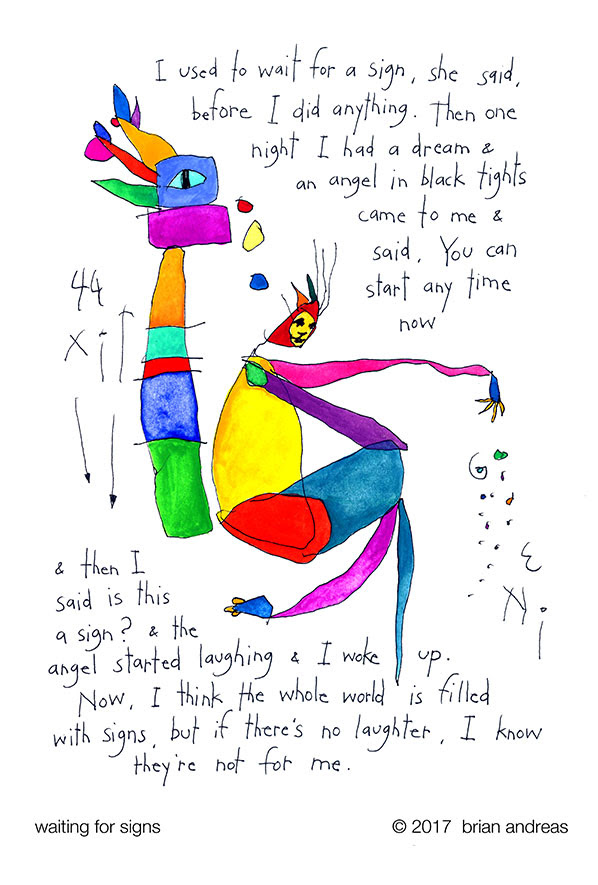 I used to wait for a sign, she said,
before I did anything. Then one
night I had a dream &
an angel in black tights
came to me &
said, You can
start any time
now
44
& then I
said is this
a sign? & the
angel started laughing & I woke up.
Now, I think the whole world is filled
with signs, but if there's no laughter, I know
they're not for me.
waiting for signs
© 2017 brian andreas